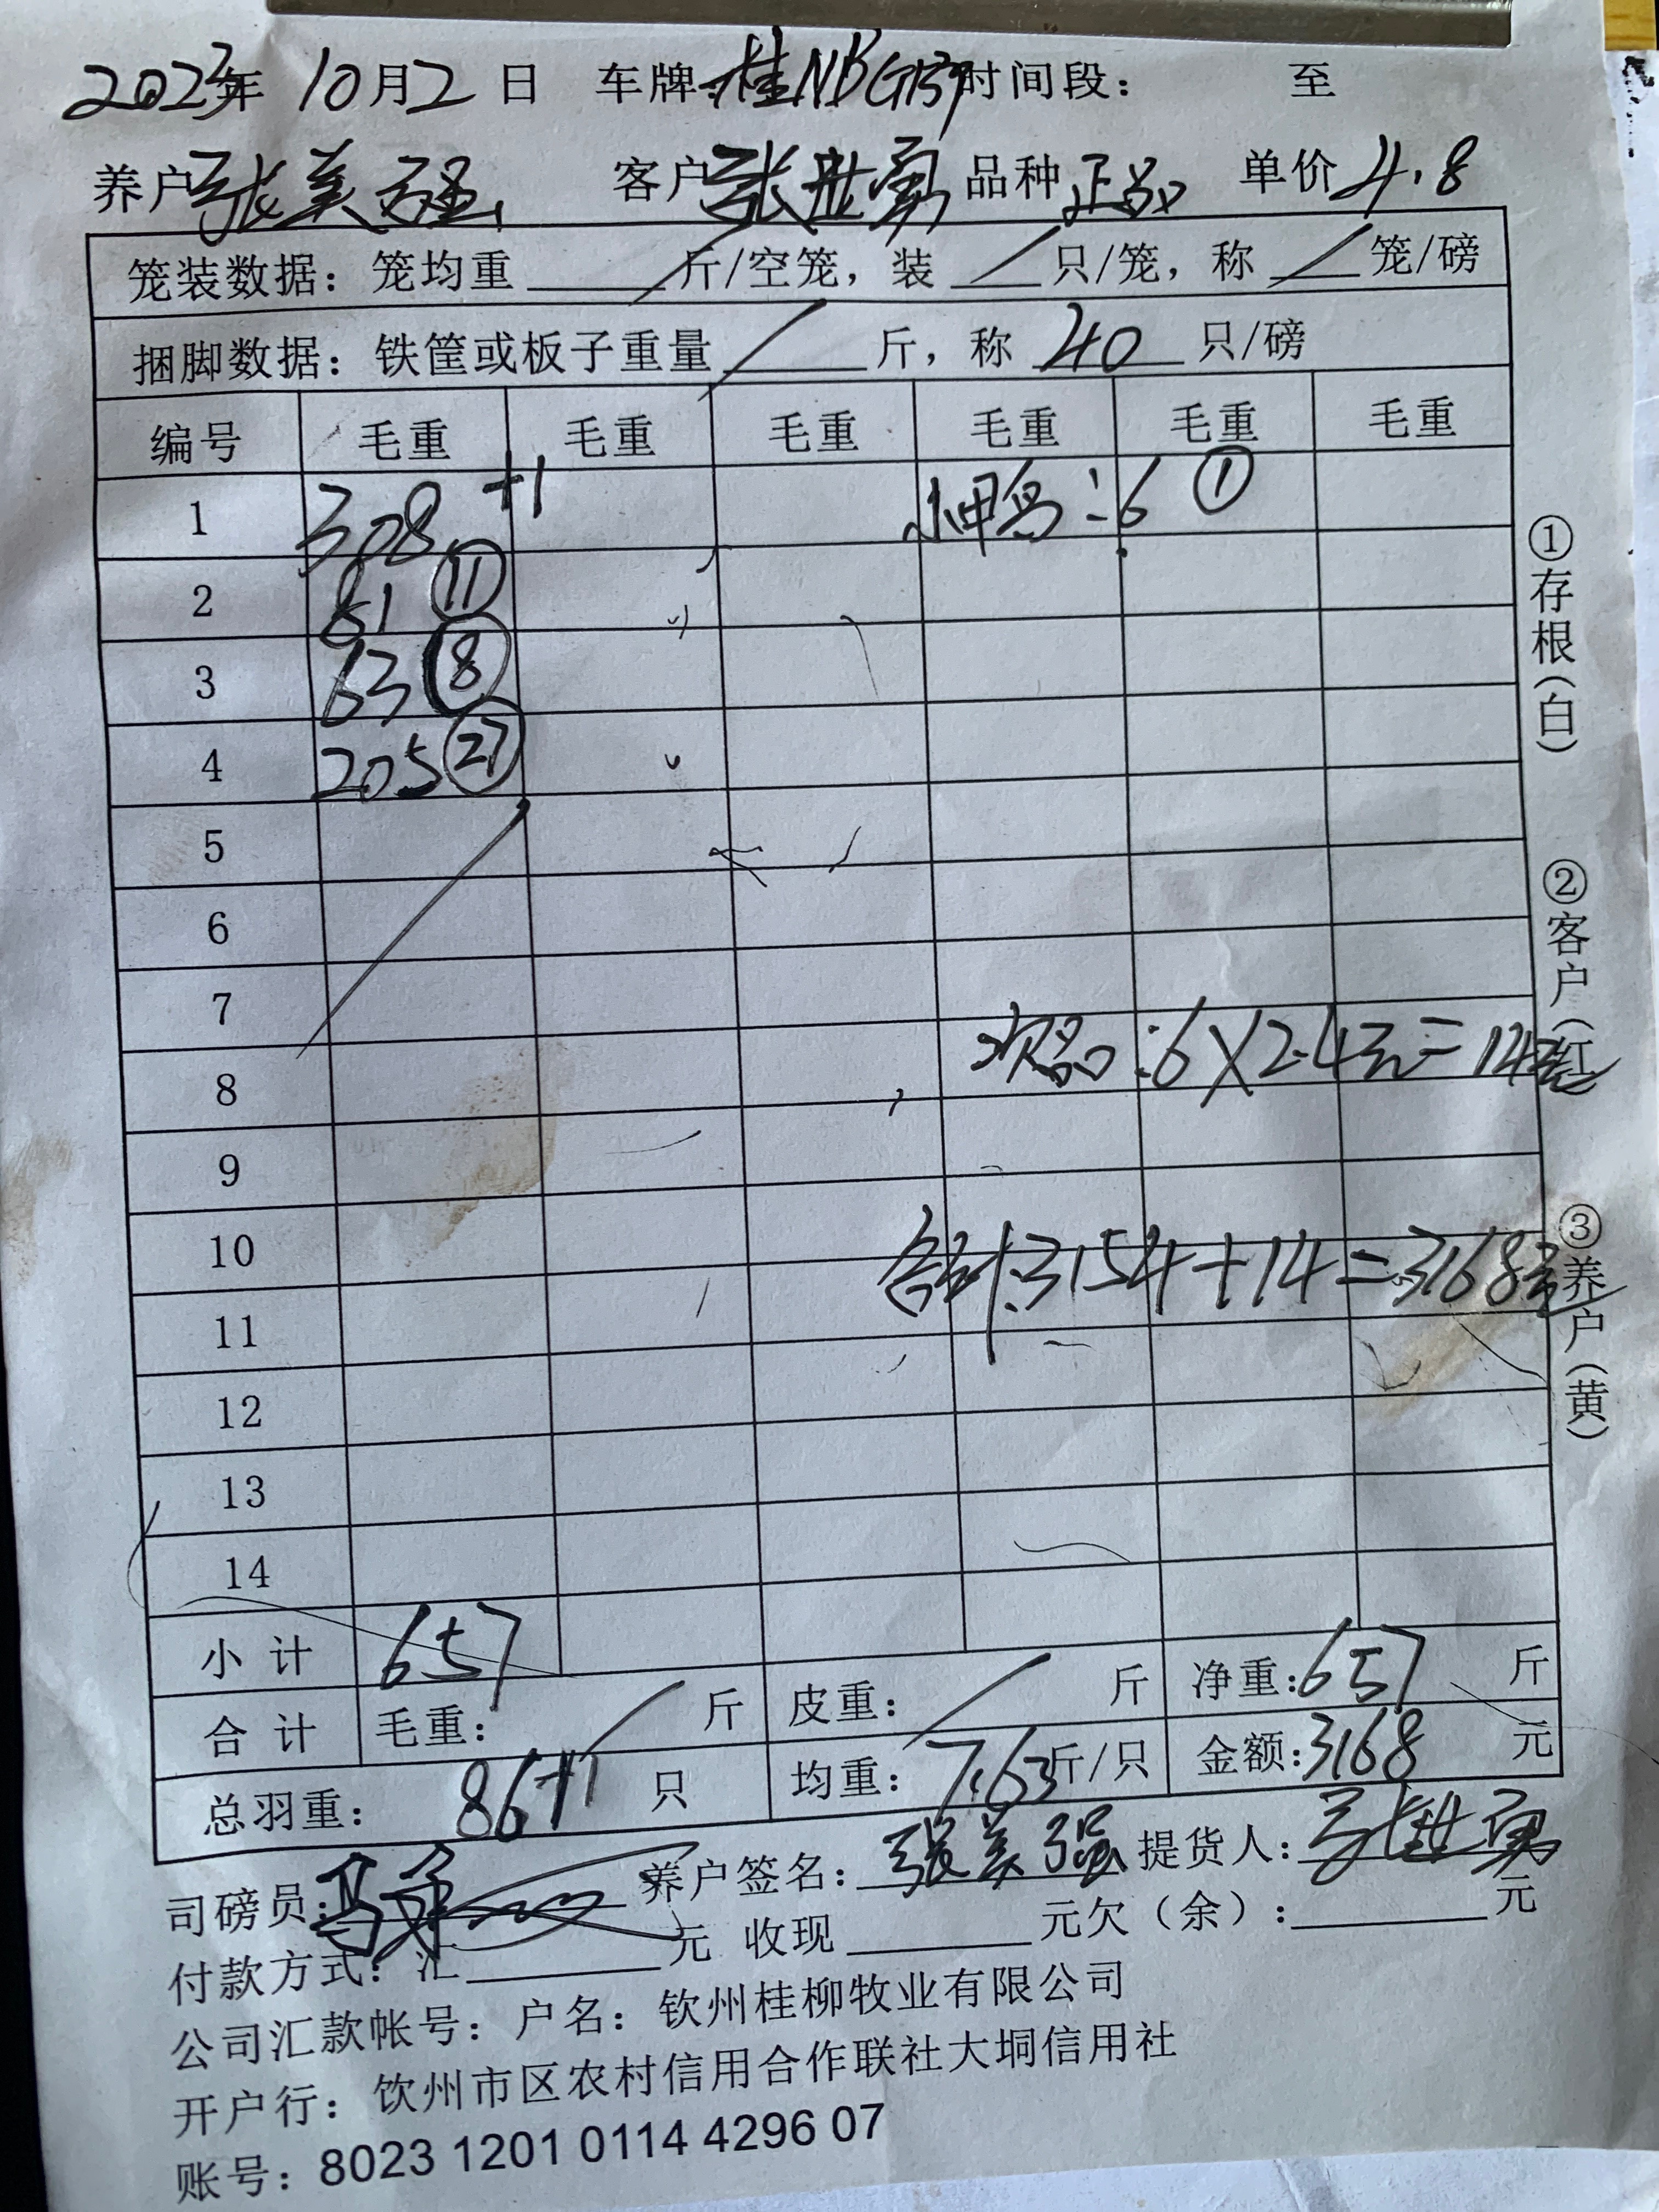 2023年 10月2日 车牌:桂NBG137 时间段： 至
养户 张美强 客户 张世勇 品种 正品 单价 4.8
笼装数据：笼均重 / 斤/空笼，装 / 只/笼，称 / 笼/磅
捆脚数据：铁筐或板子重量 / 斤，称 40 只/磅
编号 毛重 毛重 毛重 毛重 毛重 毛重
1 308 +1 :6 ①
2 81 ⑪
3 63 ⑧
4 205 ㉗
5
6
7
8 次品:6×2.4元=14元
9
10
11 合计:3154+14=3168元
12
13
14
小计 657
合计 毛重： / 斤 皮重： / 斤 净重:657 斤
总羽重： 86+1 只 均重：7.63斤/只 金额:3168 元
司磅员: 养户签名：张美强 提货人:张世勇
付款方式：汇 元 收现 元欠（余）: 元
公司汇款帐号：户名：钦州桂柳牧业有限公司
开户行：钦州市区农村信用合作联社大垌信用社
账号：8023 1201 0114 4296 07
①存根（白）
②客户（红）
③养户（黄）